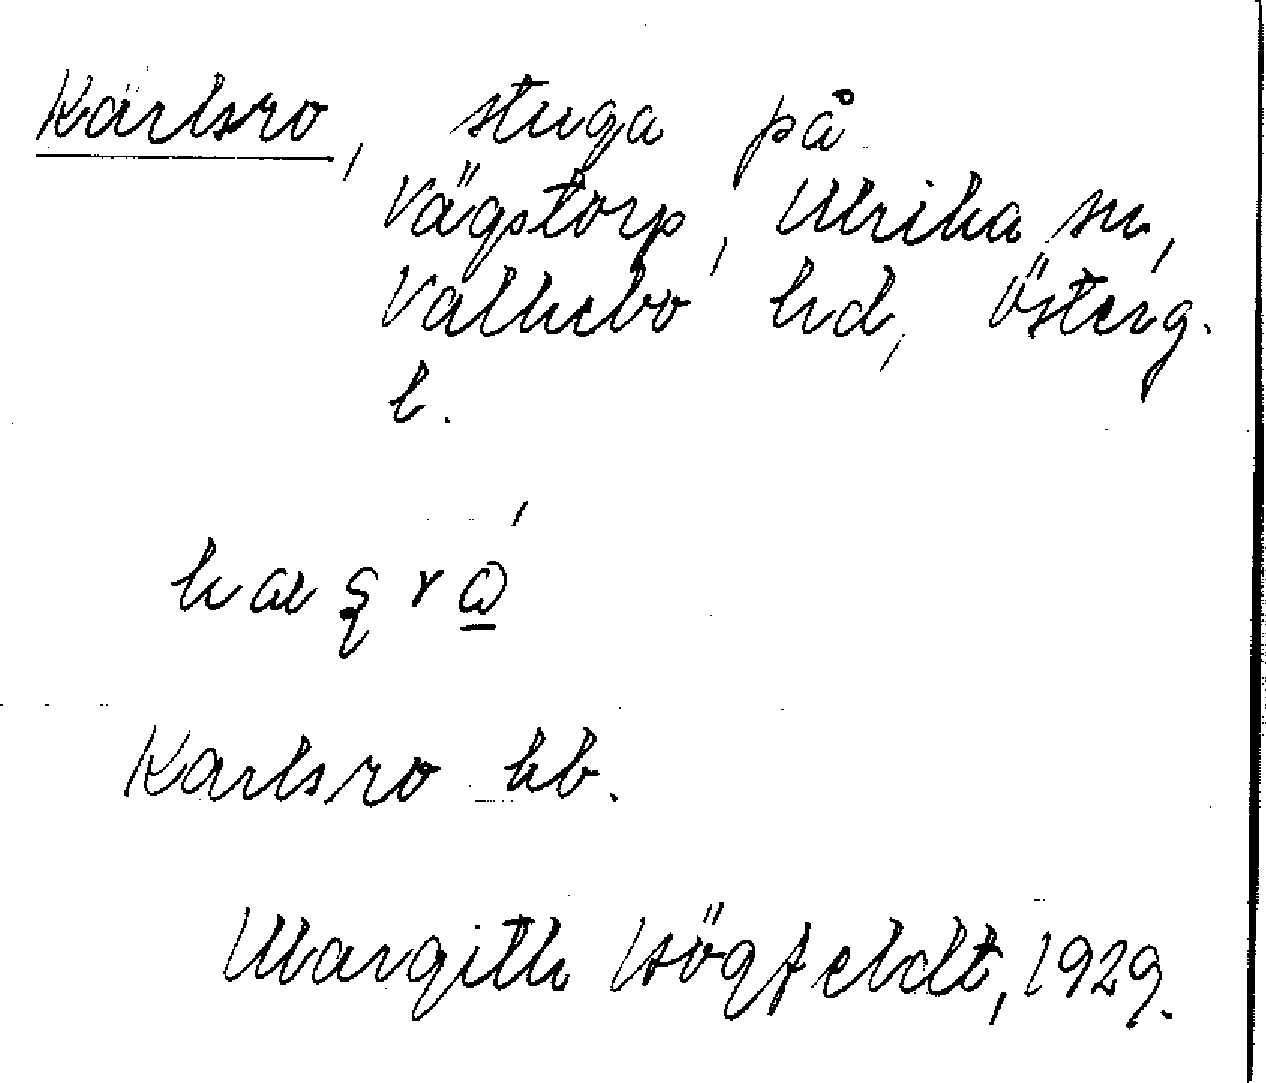 Karlsro, stuga på
Vägstorp, Ulrika sn,
Valkebo hd, Österg.
l.
Karlsro kb.
Margith Högfeldt, 1929.